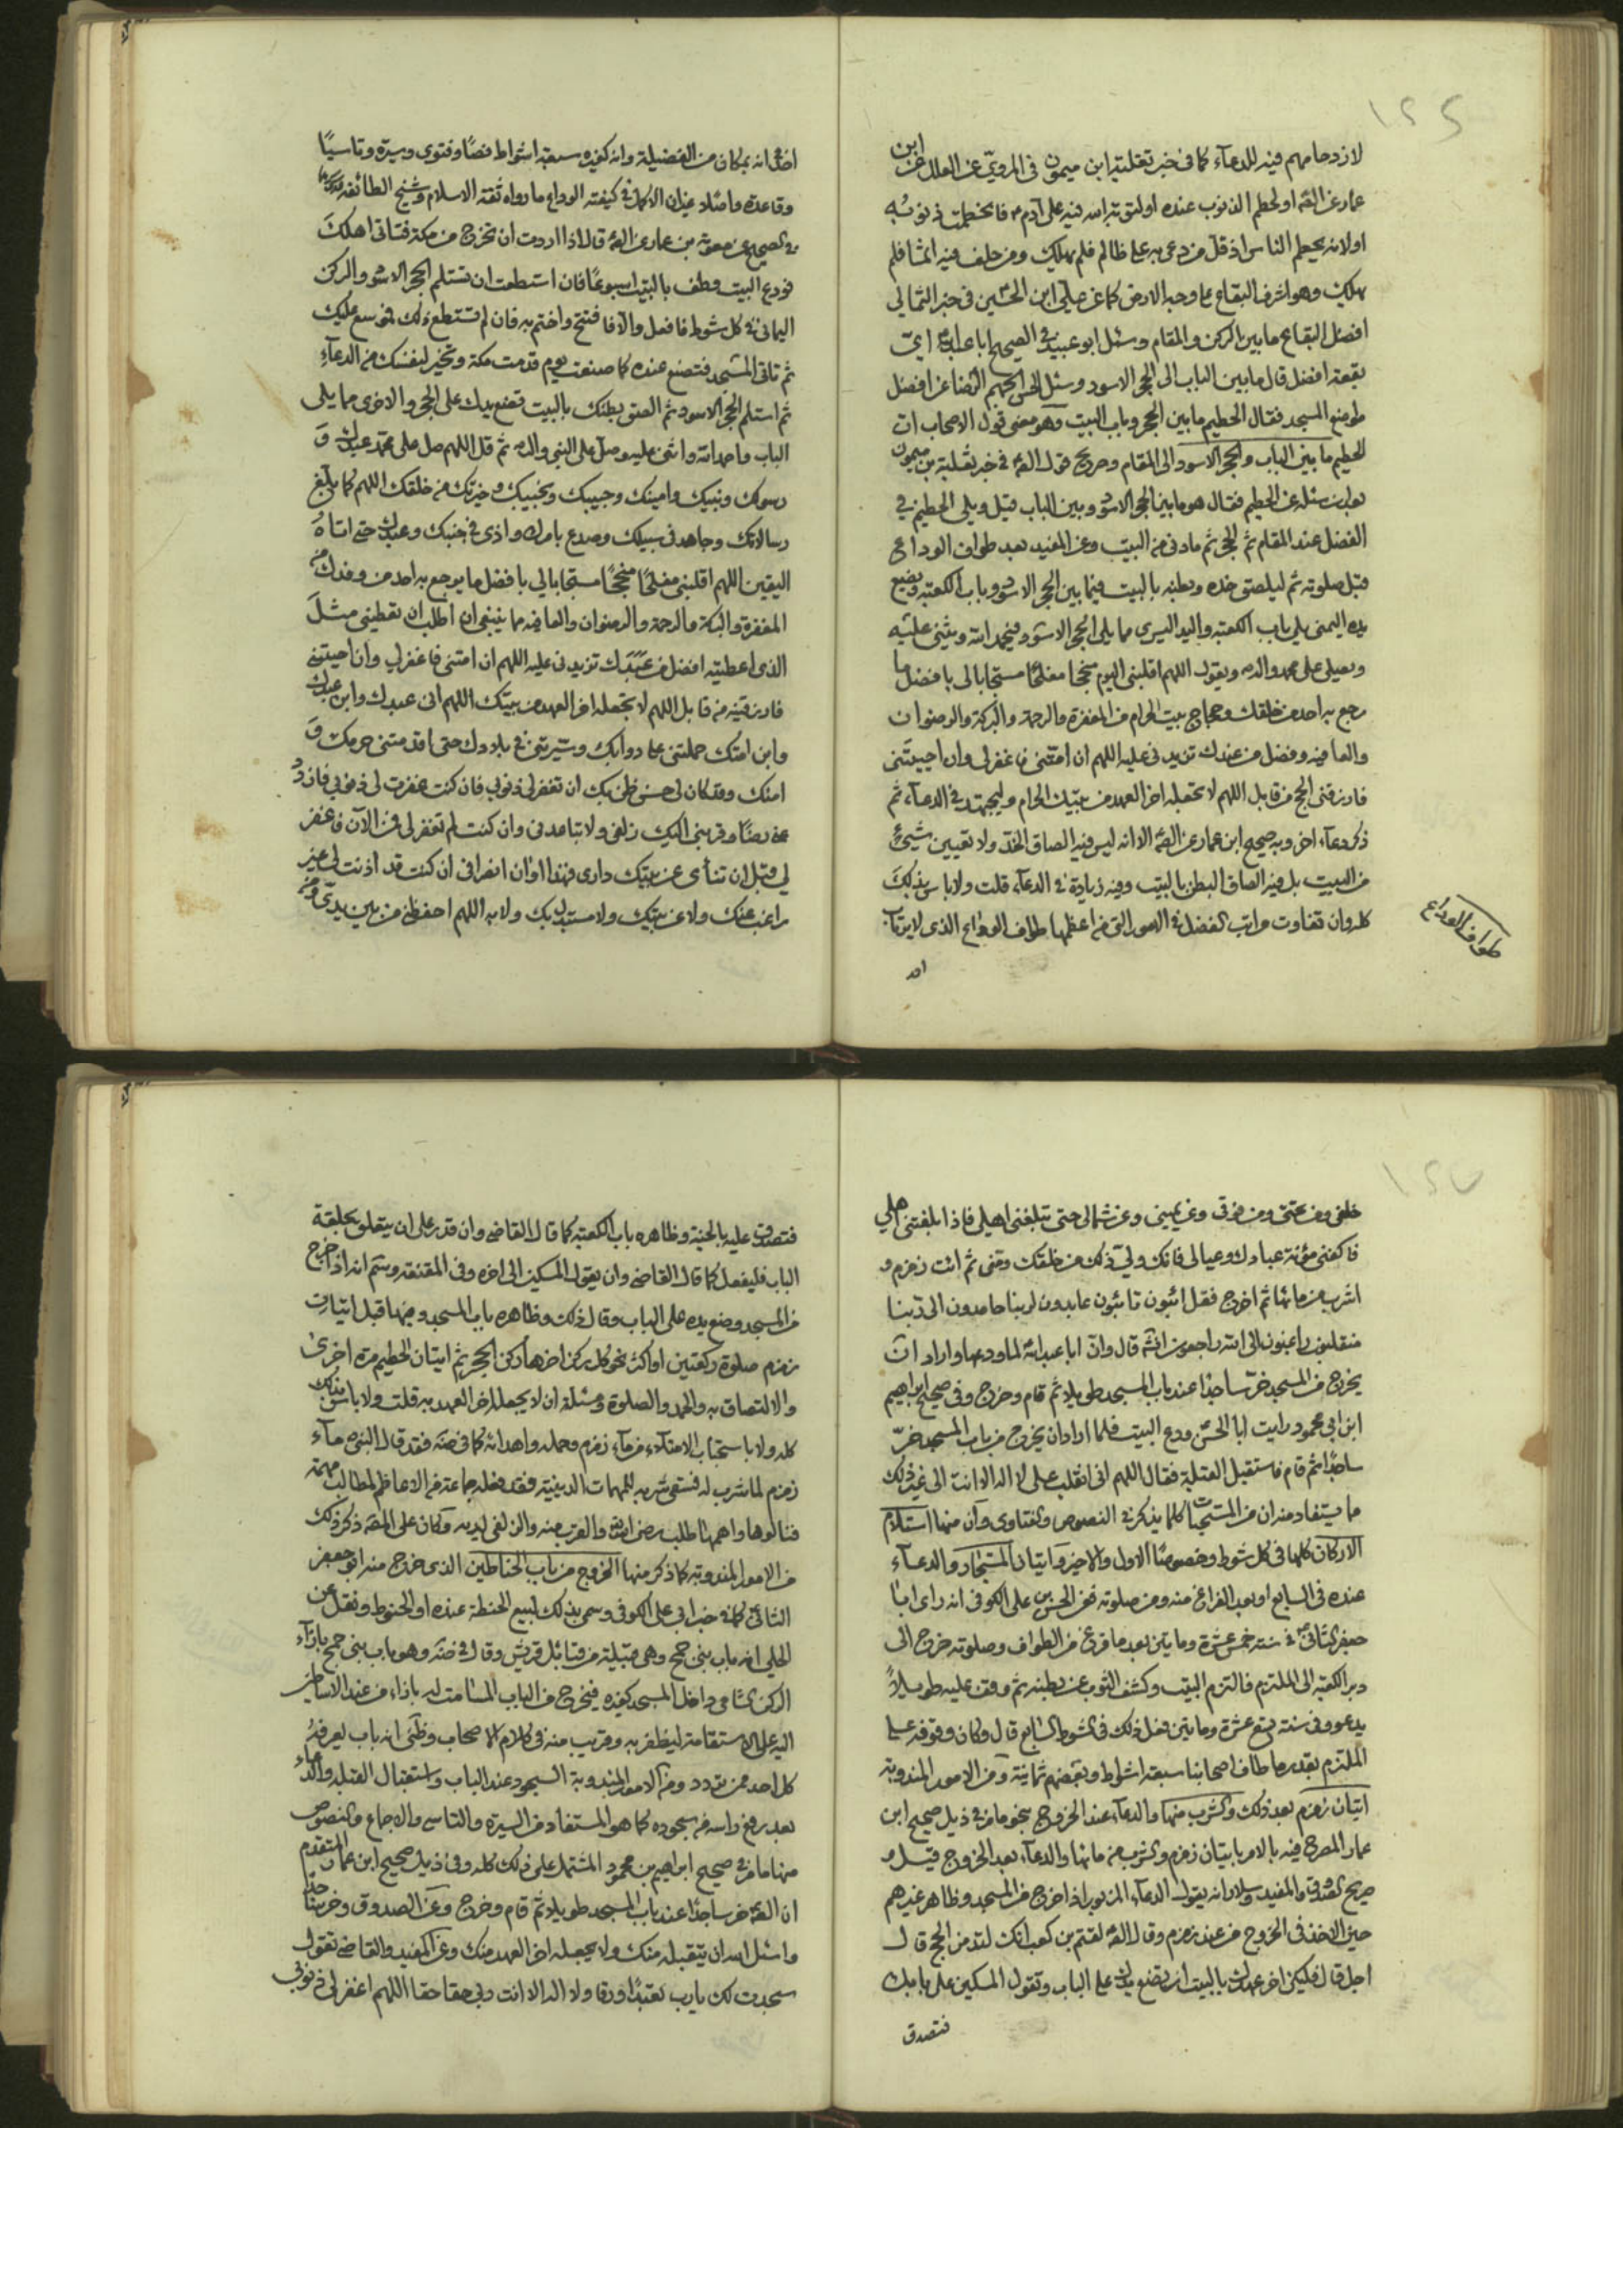 لازدحامهم فيه للدعآء كما فى خبر ثعلبة ابن ميمون فى المروىّ عن العلل عن ابن
عمار عن الصّ او لحطم الذنوب عنده او لتوبة الله فيه على آدم ع فانحطمت ذنوبه
او لانه يحطم الناس اذ قلّ من دعى به على ظالم فلم يهلك ومن حلف فيه اثما فلم
يهلك وهو اشرف البقاع على وجه الارض كما عن على ابن الحسين فى خبر الثمالى
افضل البقاع ما بين الركن والمقام وسئل ابو عبيدة فى الصحيح ابا عبدالله اىّ
بقعة افضل قال ما بين الباب الى الحجر الاسود وسئل الحسن الجهم الرضا عن افضل
موضع المسجد فقال الحطيم ما بين الحجر وباب البيت وهو معنى قول الاصحاب ان
الحطيم ما بين الباب والحجر الاسود الى المقام وصريح قول الصّ فى خبر ثعلبة بن ميمون
بعد ان سئله عن الحطيم فقال هو ما بين الحجر الاسود وبين الباب قيل ويلى الحطيم فى
الفضل عند المقام ثم الحجر ثم ما دنى من البيت وعن المفيد بعد طواف الوداع
قبل صلوته ثم ليلصق خده وبطنه بالبيت فيما بين الحجر الاسود وباب الكعبة ويضع
يده اليمنى يلى باب الكعبة واليد اليسرى مما يلى الحجر الاسود فيحمد الله ويثنى عليه
ويصلى على محمد واله ويقول اللهم اقلبنى اليوم منجحا مفلحا مستجابا لى بافضل ما
رجع به احد من خلقك وحجاج بيتك الحرام من المغفرة والرحمة والبركة والرضوان
والعافيه وفضل من عندك تزيدنى عليه اللهم ان امتّنى فاغفر لى وان احييتنى
فارزقنى الحج من قابل اللهم لا تجعله اخر العهد من بيتك الحرام وليجتهد فى الدعآء ثم
ذكر دعآء اخر وبه صحيح ابن عمار عن الصّ الا انه ليس فيه الصاق الخدّ ولا تعيين شيئ
من البيت بل فيه الصاق البطن بالبيت وفيه زيادة فى الدعآء قلت ولا باس بذلك
كله وان تفاوت مراتب الفضل فى الامور التى من اعظمها طواف الوداع الذى لا يرتاب
طواف الوداع
احد
احد انه بمكان من الفضيلة وانه كغيره سبعة اشواط نصّا وفتوى وسيرة وتاسيًا
وقاعدة واصلا غير ان الاكمل فى كيفية الوداع ما رواه ثقة الاسلام وشيخ الطائفه
فى الصحيح عن معوية بن عمار عن الصّ قال اذا اردت ان تخرج من مكة فتاتى اهلك
فودع البيت وطف بالبيت اسبوعًا فان استطعت ان تستلم الحجر الاسود والركن
اليمانى فى كل شوط فافعل والا فافتتح واختم به فان لم تستطع ذلك فموسع عليك
ثم تاتى المستجار فتصنع عنده كما صنعت يوم قدمت مكة وتخير لنفسك من الدعآء
ثم استلم الحجر الاسود ثم الصق بطنك بالبيت تضع يدك على الحجر والاخرى مما يلى
الباب واحمد الله واثنى عليه وصل على النبى واله ثم قل اللهم صل على محمّد عبدك وَ
رسولك ونبيك وامينك وحبيبك ونجيبك وخيرتك من خلقك اللهم كما بلّغ
رسالاتك وجاهد فى سبيلك وصدع بامرك واذى فى جنبك وعبدك حتى اتاهُ
اليقين اللهم اقلبنى مفلحًا منجحًا مستجابا لى بافضل ما يرجع به احد من وفدك من
المغفرة والبركة والرحمة والرضوان والعافيه مما ينبغى ان اطلب ان تعطينى مثلَ
الذى اعطيته افضل من عندك تزيدنى عليه اللهم ان امتّنى فاغفر لى وان احييتنى
فارزقنيه من قابل اللهم لا تجعله اخر العهد من بيتك اللهم انى عبدك وابن عبدك
وابن امتك حملتنى على دوابك وسيّرتنى فى بلادك حتى اقدمتنى حرمك وَ
امنك وقد كان لى حسن ظنى بك ان تغفر لى ذنوبى فان كنت غفرت لى ذنوبى فازدد
عنى رضًا وقربنى اليك زلفى ولا تباعدنى وان كنت لم تغفر لى فمن الآن فاغفر
لى قبل ان تنأى عن بيتك دارى فهذا اوان انصرافى ان كنت قد اذنت لى غير
راغب عنك ولا عن بيتك ولا مستبدل بك ولا به اللهم احفظنى من بين يدىّ ومن
خلفى ومن تحتى ومن فوقى وعن يمينى وعن شمالى حتى تبلغنى اهلى فاذا بلغتنى اهلى
فاكفنى مؤنة عبادك وعيالى فانك ولىّ ذلك من خلقك ومنى ثم ائت زمزم و
اشرب من مائها ثم اخرج فقل ائبون تائبون عابدون لربنا حامدون الى ربنا
منقلبون راغبون الى الله راجعون انشآء قال وانّ ابا عبدالله لما ودعها واراد ان
يخرج من المسجد خرّ ساجدًا عند باب المسجد طويلا ثم قام وخرج وفى صحيح ابراهيم
ابن ابى محمود رايت ابا الحسن ودع البيت فلما اراد ان يخرج من باب المسجد خرّ
ساجدًا ثم قام فاستقبل القبلة فقال اللهم انى انقلب على لا اله الا انت الى غير ذلك
ما يستفاد منه ان من المستحبّات كلما يذكر فى النصوص والفتاوى وان منها استلام
الاركان كلها فى كل شوط وخصوصًا الاول والاخير وايتيان المستجار والدعآء
عنده فى السابع او بعد الفراغ منه ومن صلوته فعن الحسن بن على الكوفى انه راى ابا
جعفر الثانى فى سنة خمس عشرة ومايتين بعد ما فرغ من الطواف وصلوته خرج الى
دبر الكعبة الى الملتزم فالتزم البيت وكشف الثوب عن بطنه ثم وقف عليه طويلاً
يدعو وفى سنة تسع عشرة ومايتين فعل ذلك فى الشوط السابع قال وكان وقوفه على
الملتزم بقدر ما طاف اصحابنا سبعة اشواط وبعضهم ثمانية ومن الامور المندوبة
اتيان زمزم بعد ذلك والشرب منها والدعآء عند الخروج بنحو ما مر فى ذيل صحيح ابن
عمار المصرح فيه بالامر باتيان زمزم والشرب من مائها والدعآء بعد الخروج قيل و
صريح الصدوق والمفيد وسلار انه يقول الدعآء المزبور اذا خرج من المسجد وظاهر غيرهم
حين الاخذ فى الخروج من عند زمزم وقال الصّ لقثم بن كعب انك لتدمن الحج قال
اجل قال فليكن اخر عهدك بالبيت ان تضع يدك على الباب وتقول المسكين على بابك
فتصدق
فتصدق عليه بالجنة وظاهره باب الكعبة كما قال القاضى وان قدر على ان يتعلق بحلقة
الباب فليفعل كما قال القاضى وان يقول المسكين الى اخره وفى المقنعه انه اذا خرج
من المسجد وضع يده على الباب وقال ذلك وظاهره باب المسجد ومنها قبل اتيان
زمزم صلوة ركعتين او اكثر نحو كل ركن اخرها ركن الحجر ثم ايتان الحطيم مرة اخرى
والالتصاق به والحمد والصلوة ومسئلة ان لا يجعله اخر العهد به قلت ولا باس بذلك
كله ولا باستحباب الامتلاء من مآء زمزم وحمله واهدائه كما فى ضة فقد قال النبى ص مآء
زمزم لما شرب له فينبغى شربه للمهمات الدينية فقد فعله جماعة من الاعاظم لمطالب مهمة
فنالوها واهمها طلب رضى الله والقرب منه والزلفى لديه وكان على المصّ ذكر ذلك
من الامور المندوبة كما ذكر منها الخروج من باب الحناطين الذى خرج منه ابو جعفر
الثانى كما فى خبر ابى على الكوفى وسمى بذلك لبيع الحنطة عنده او الحنوط ونقل عن
الحلى انه باب بنى جمح وهى قبيلة من قبائل قريش وقال فى ضة وهو باب بنى جمح بازآء
الركن الشامى داخل المسجد كغيره فيخرج من الباب المسامت له بازاء من عند الاساطين
اليه على الاستقامة ليظفر به وقريب منه فى كلام الاصحاب وظنّى انه باب يعرفهُ
كل احد ممن تردد ومن الامور المندوبة السجود عند الباب واستقبال القبله والدعاء
بعد رفع راسه من سجوده كما هو المستفاد من السيرة والتاسى والاجماع والنصوص
منها ما مر فى صحيح ابراهيم بن محمود المشتمل على ذلك كله وفى ذيل صحيح ابن عمار المتقدم
ان الصّ خر ساجدًا عند باب المسجد طويلا ثم قام وخرج وعن الصدوق وخر ساجدا
واسئل الله ان يتقبله منك ولا يجعله اخر العهد منك وعن المفيد والقاضى تقول
سجدت لك يارب تعبّدًا ورقا ولا اله الا انت ربى حقا حقا اللهم اغفر لى ذنوبى